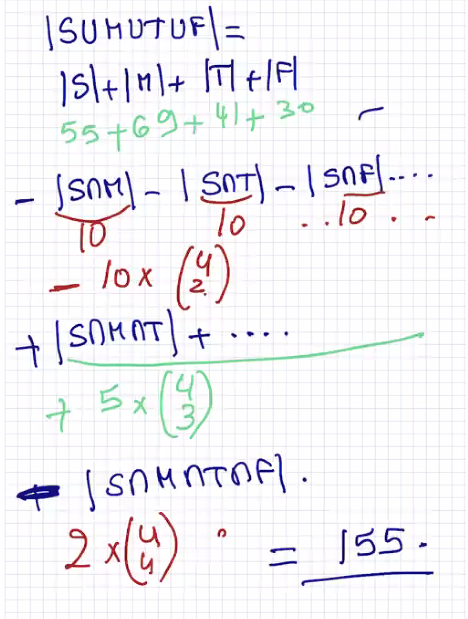 |S∪M∪T∪F| =
|S|+|M|+ |T|+|F|
55+69+41+30 -
- |S∩M| - |S∩T| - |S∩F|....
10 10 ..10 . -
- 10 x (4 2)
+ |S∩M∩T| + ....
+ 5 x (4 3)
|S∩M∩T∩F|.
2 x (4 4) = 155.